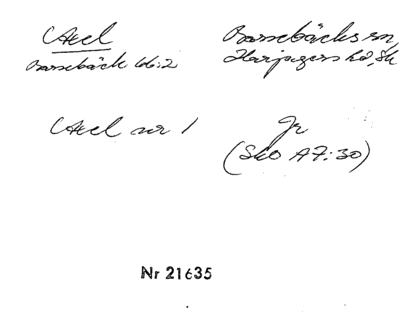 Axel
Barsebäck 66:2
Barsebäcks sn,
Harjagers hd, Sk
Axel nr 1
Jr
(SkO A7:30)
Nr 21635